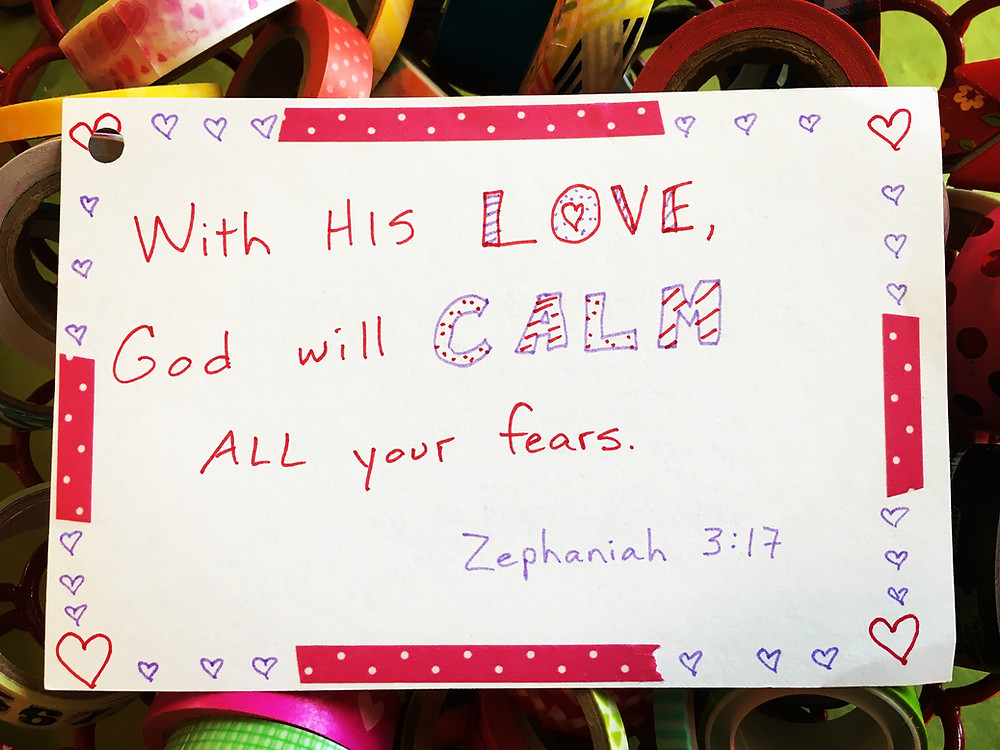 With HIS LOVE,
God will CALM
ALL your fears.
Zephaniah 3:17